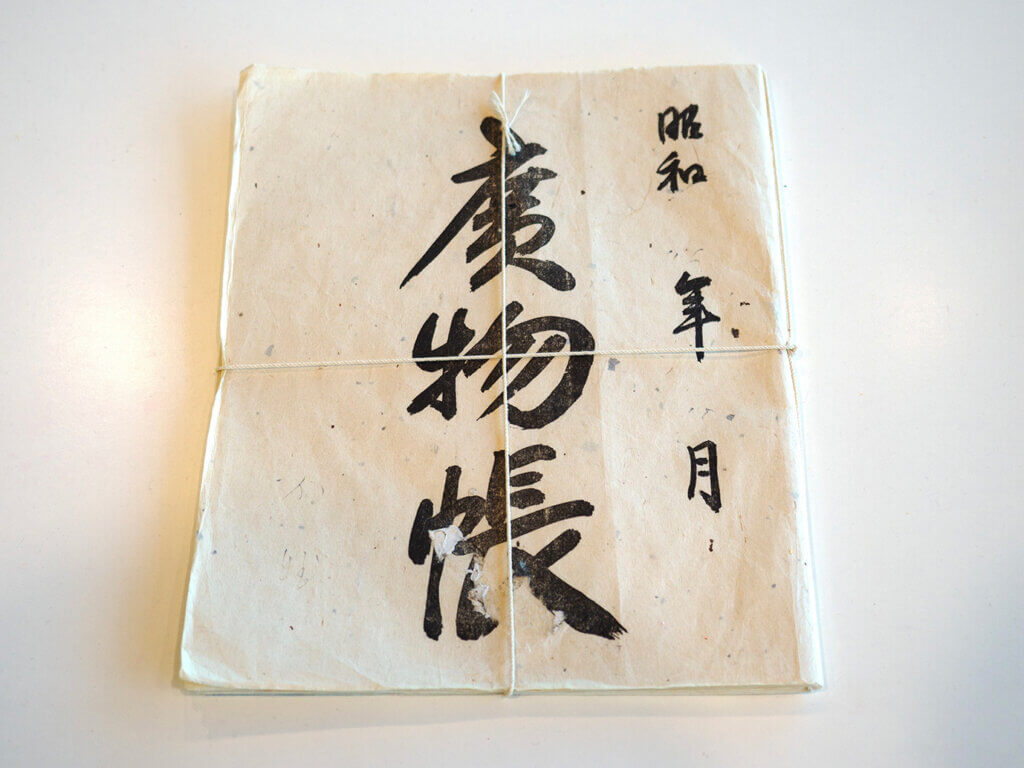 昭和 年 月
廣物帳